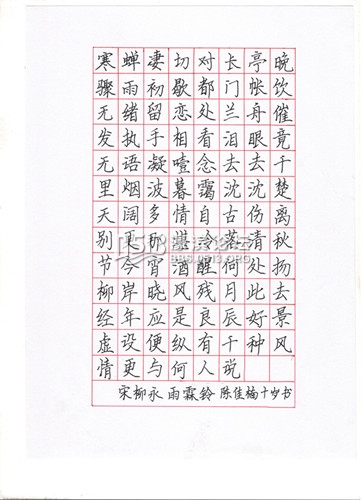 寒蝉凄切对长亭晚
骤雨初歇都门帐饮
无绪留恋处兰舟催
发执手相看泪眼竟
无语凝噎念去去千
里烟波暮霭沈沈楚
天阔多情自古伤离
别更那堪冷落清秋
节今宵酒醒何处扬
柳岸晓风残月此去
经年应是良辰好景
虚设便纵有千种风
情更与何人说
宋柳永 雨霖铃 陈佳 十岁书